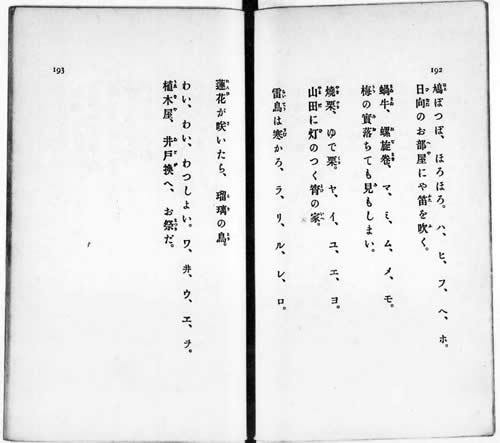 192
鳩ぽつぽ、ほろほろ。ハ、ヒ、フ、ヘ、ホ。
日向のお部屋にや笛を吹く。
蝸牛、螺旋巻、マ、ミ、ム、メ、モ。
梅の實落ちても見もしまい。
燒栗、ゆで栗。ヤ、イ、ユ、エ、ヨ。
山田に灯のつく宵の家。
雷鳥は寒かろ、ラ、リ、ル、レ、ロ。
193
蓮花が咲いたら、瑠璃の鳥。
わい、わい、わつしよい。ワ、ヰ、ウ、ヱ、ヲ。
植木屋、井戸換へ、お祭だ。